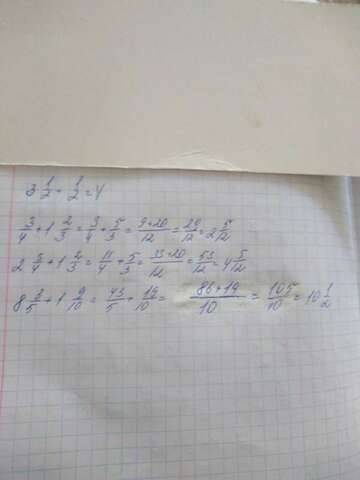 3 1/2 + 1/2 = 4
3/4 + 1 2/3 = 3/4 + 5/3 = 9+20/12 = 29/12 = 2 5/12
2 3/4 + 1 2/3 = 11/4 + 5/3 = 33+20/12 = 53/12 = 4 5/12
8 3/5 + 1 9/10 = 43/5 + 19/10 = 86+19/10 = 105/10 = 10 1/2